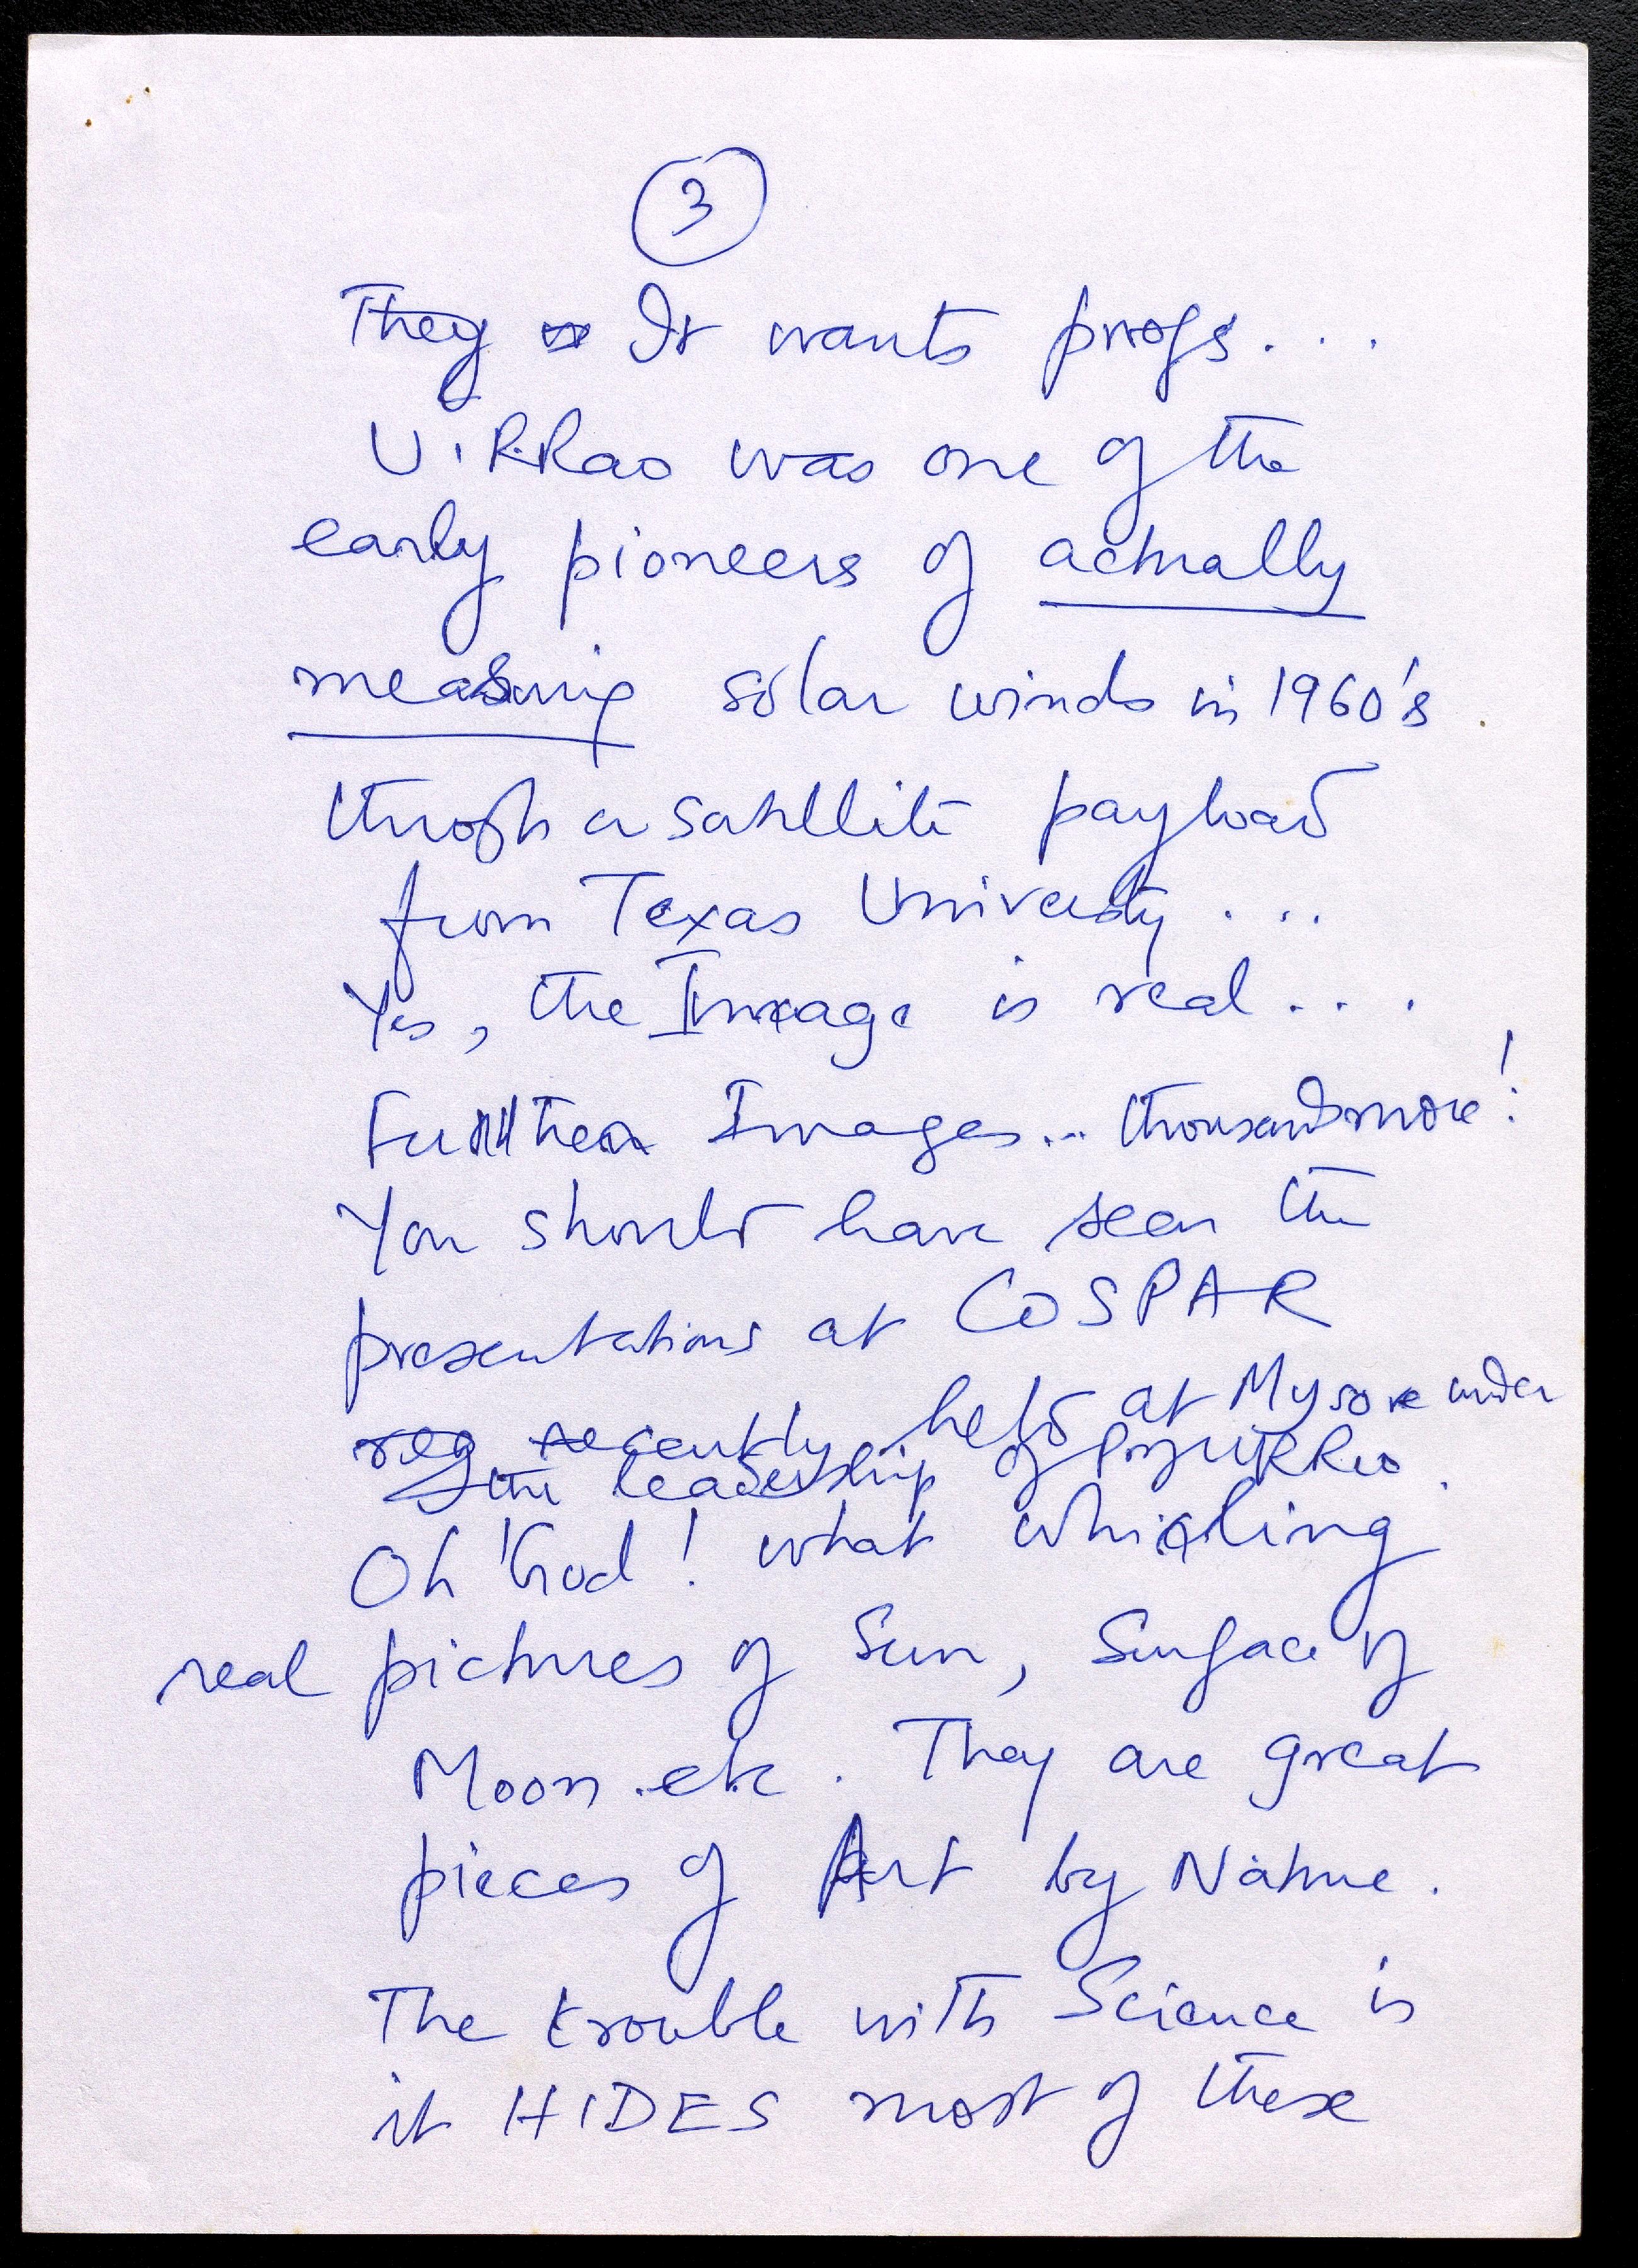 3
They It wants proofs...
U.R.Rao was one of the
early pioneers of actually
measuring solar winds in 1960's.
through a satellite payload
from Texas University...
Yes, the Image is real....
Further Images... thousands more!
You should have seen the
presentations at COSPAR
reg recently held at Mysore under
the leadership of Prof U R Rao.
Oh God! what whirling
real pictures of Sun, Surface of
Moon etc. They are great
pieces of Art by Nature.
The trouble with Science is
it HIDES most of these